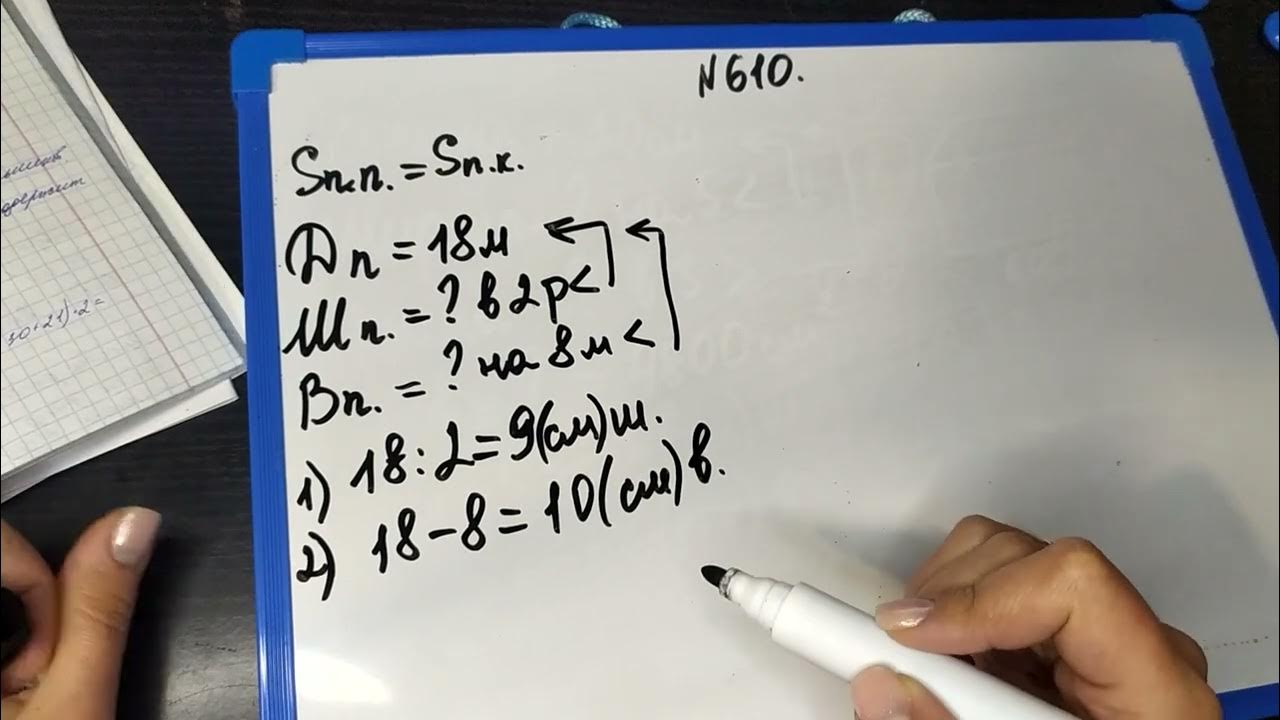 N610.
Sп.п. = Sп.к.
Дп = 18м
Шп. = ? в 2 р <
Вп. = ? на 8 м <
1) 18 : 2 = 9(см) ш.
2) 18 - 8 = 10(см) в.
30+21)·2=